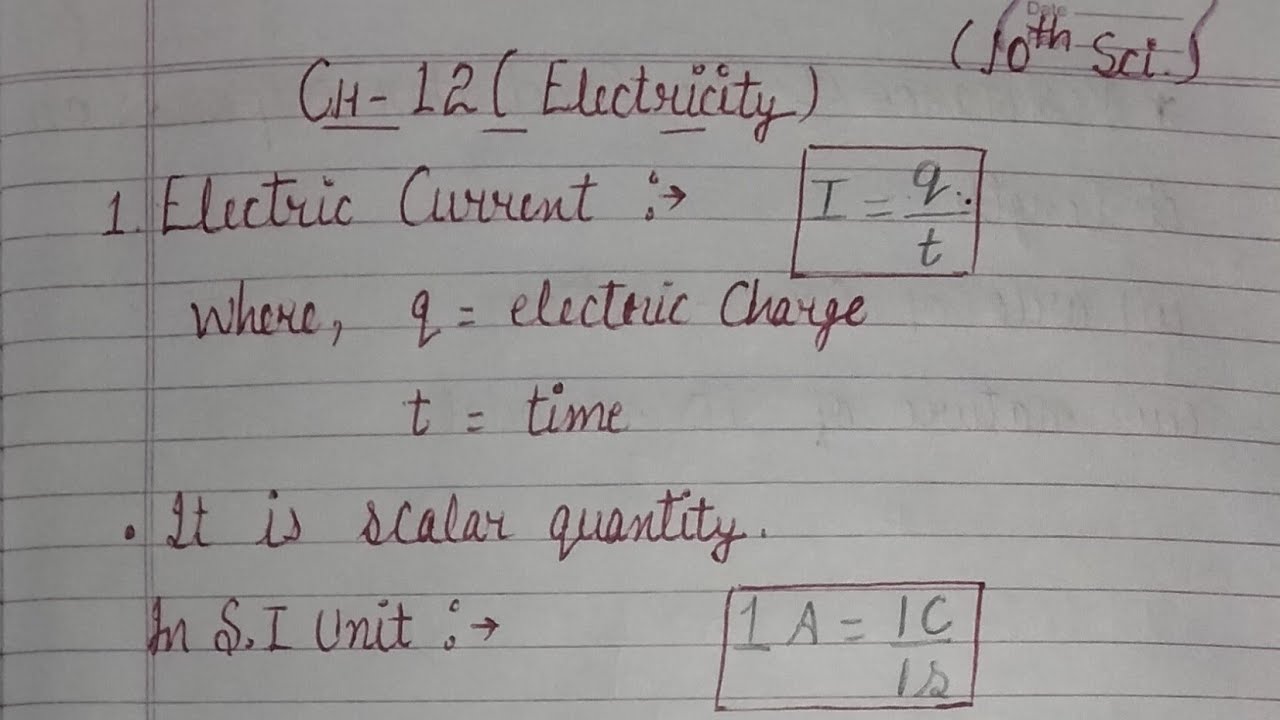 Date
(10th Sci.)
CH-12 (Electricity)
1. Electric Current :→ I = q/t
Where, q = electric Charge
t = time
• It is scalar quantity.
In S.I Unit :→ 1 A = 1C/1s